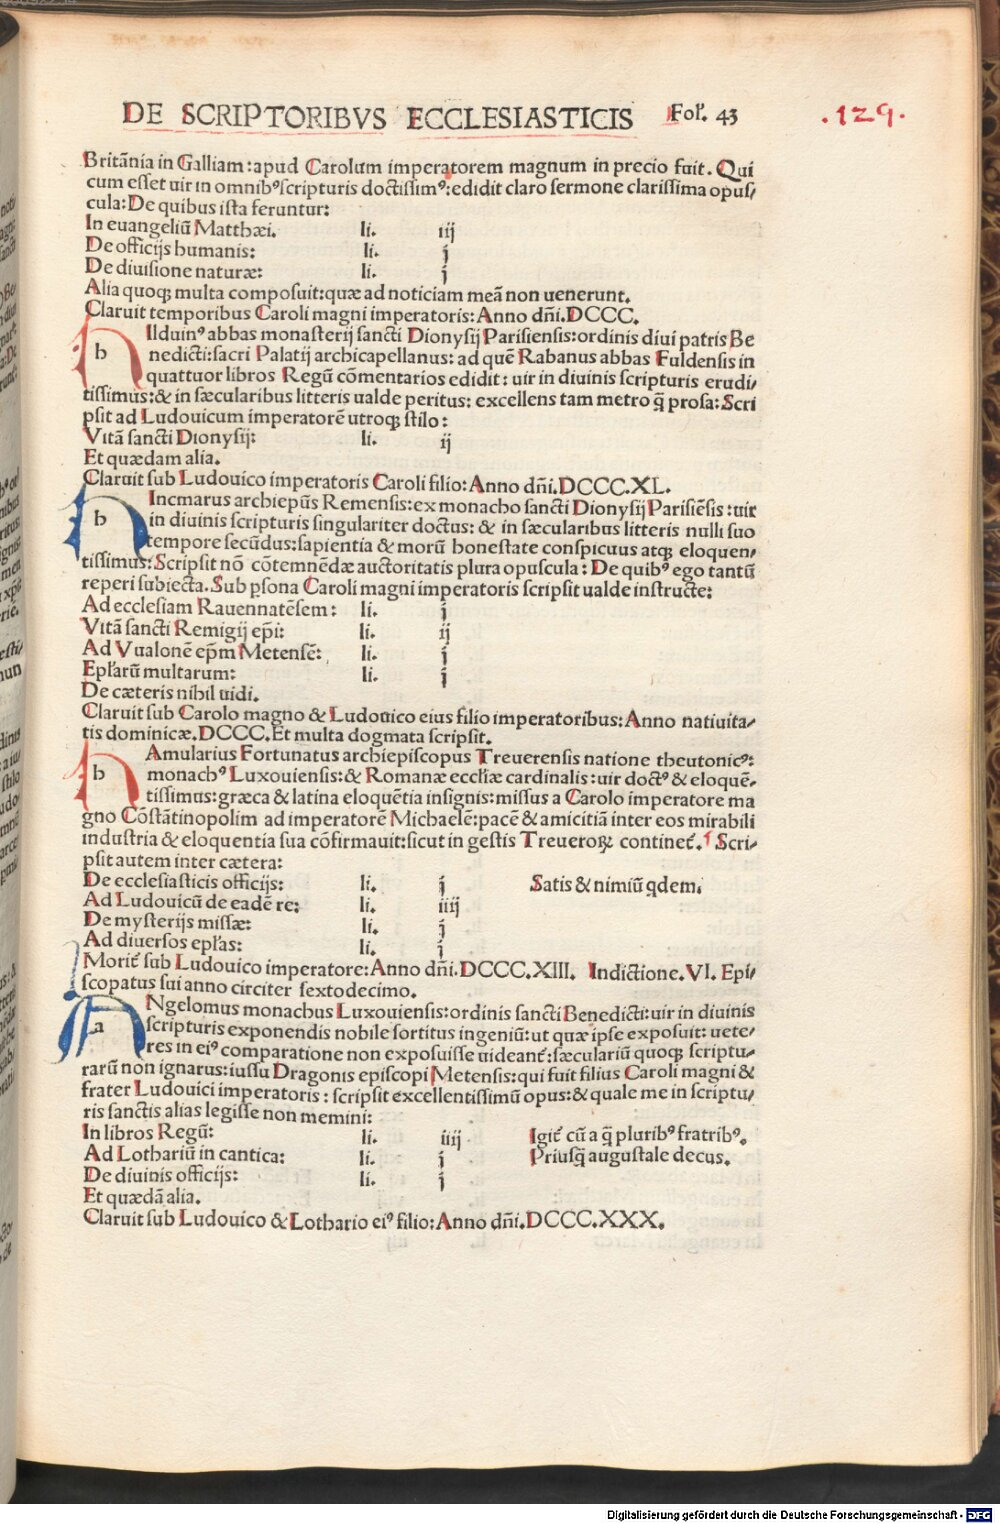 DE SCRIPTORIBVS ECCLESIASTICIS Fol'. 43 .129.
Britānia in Galliam:apud Carolum imperatorem magnum in precio fuit. Qui
cum esset uir in omnibꝰ scripturis doctissimꝰ:edidit claro sermone clarissima opus/
cula:De quibus ista feruntur:
In euangeliū Matthæi. li. iij
De officijs humanis: li. j
De diuisione naturæ: li. j
Alia quoqꝫ multa composuit:quæ ad noticiam meā non uenerunt.
Claruit temporibus Caroli magni imperatoris: Anno dn̄i.DCCC.
h Ilduinꝰ abbas monasterij sancti Dionysij Parisiensis:ordinis diui patris Be
nedicti:sacri Palatij archicapellanus: ad quē Rabanus abbas Fuldensis in
quattuor libros Regū cōmentarios edidit: uir in diuinis scripturis erudi/
tissimus:& in sæcularibus litteris ualde peritus: excellens tam metro q̄ prosa: Scri
psit ad Ludouicum imperatorē utroqꝫ stilo:
Vitā sancti Dionysij: li. ij
Et quædam alia.
Claruit sub Ludouico imperatoris Caroli filio: Anno dn̄i.DCCC.XL.
h Incmarus archiepūs Remensis:ex monacho sancti Dionysij Parisiēsis:uir
in diuinis scripturis singulariter doctus: & in sæcularibus litteris nulli suo
tempore secūdus:sapientia & morū honestate conspicuus atqꝫ eloquen/
tissimus:Scripsit nō cōtemnēdæ auctoritatis plura opuscula: De quibꝰ ego tantū
reperi subiecta. Sub psona Caroli magni imperatoris scripsit ualde instructe:
Ad ecclesiam Rauennatēsem: li. j
Vitā sancti Remigij ep̄i: li. ij
Ad Vualonē ep̄m Metensē: li. j
Epl'arū multarum: li. j
De cæteris nihil uidi.
Claruit sub Carolo magno & Ludouico eius filio imperatoribus: Anno natiuita/
tis dominicæ.DCCC.Et multa dogmata scripsit.
h Amularius Fortunatus archiepiscopus Treuerensis natione theutonicꝰ:
monachꝰ Luxouiensis:& Romanæ eccl'iæ cardinalis:uir doctꝰ & eloquē/
tissimus:græca & latina eloquētia insignis:missus a Carolo imperatore ma
gno Cōstātinopolim ad imperatorē Michaelē:pacē & amicitiā inter eos mirabili
industria & eloquentia sua cōfirmauit:sicut in gestis Treueroꝝ continet̄. Scri/
psit autem inter cætera:
De ecclesiasticis officijs: li. j Satis & nimiū qdem.
Ad Ludouicū de eadē re: li. iiij
De mysterijs missæ: li. j
Ad diuersos epl'as: li. j
Morit̄ sub Ludouico imperatore: Anno dn̄i.DCCC.XIII. Indictione.VI. Epi/
scopatus sui anno circiter sextodecimo.
a Ngelomus monachus Luxouiensis:ordinis sancti Benedicti:uir in diuinis
scripturis exponendis nobile sortitus ingeniū:ut quæ ipse exposuit: uete/
res in eiꝰ comparatione non exposuisse uideant̄:sæculariū quoqꝫ scriptu/
rarū non ignarus:iussu Dragonis episcopi Metensis:qui fuit filius Caroli magni &
frater Ludouici imperatoris: scripsit excellentissimū opus:& quale me in scriptu/
ris sanctis alias legisse non memini:
In libros Regū: li. iiij Igit̄ cū a q̄ pluribꝰ fratribꝰ.
Ad Lothariū in cantica: li. j Priusq̄ augustale decus.
De diuinis officijs: li. j
Et quædā alia.
Claruit sub Ludouico & Lothario eiꝰ filio: Anno dn̄i.DCCC.XXX.
Digitalisierung gefördert durch die Deutsche Forschungsgemeinschaft - DFG